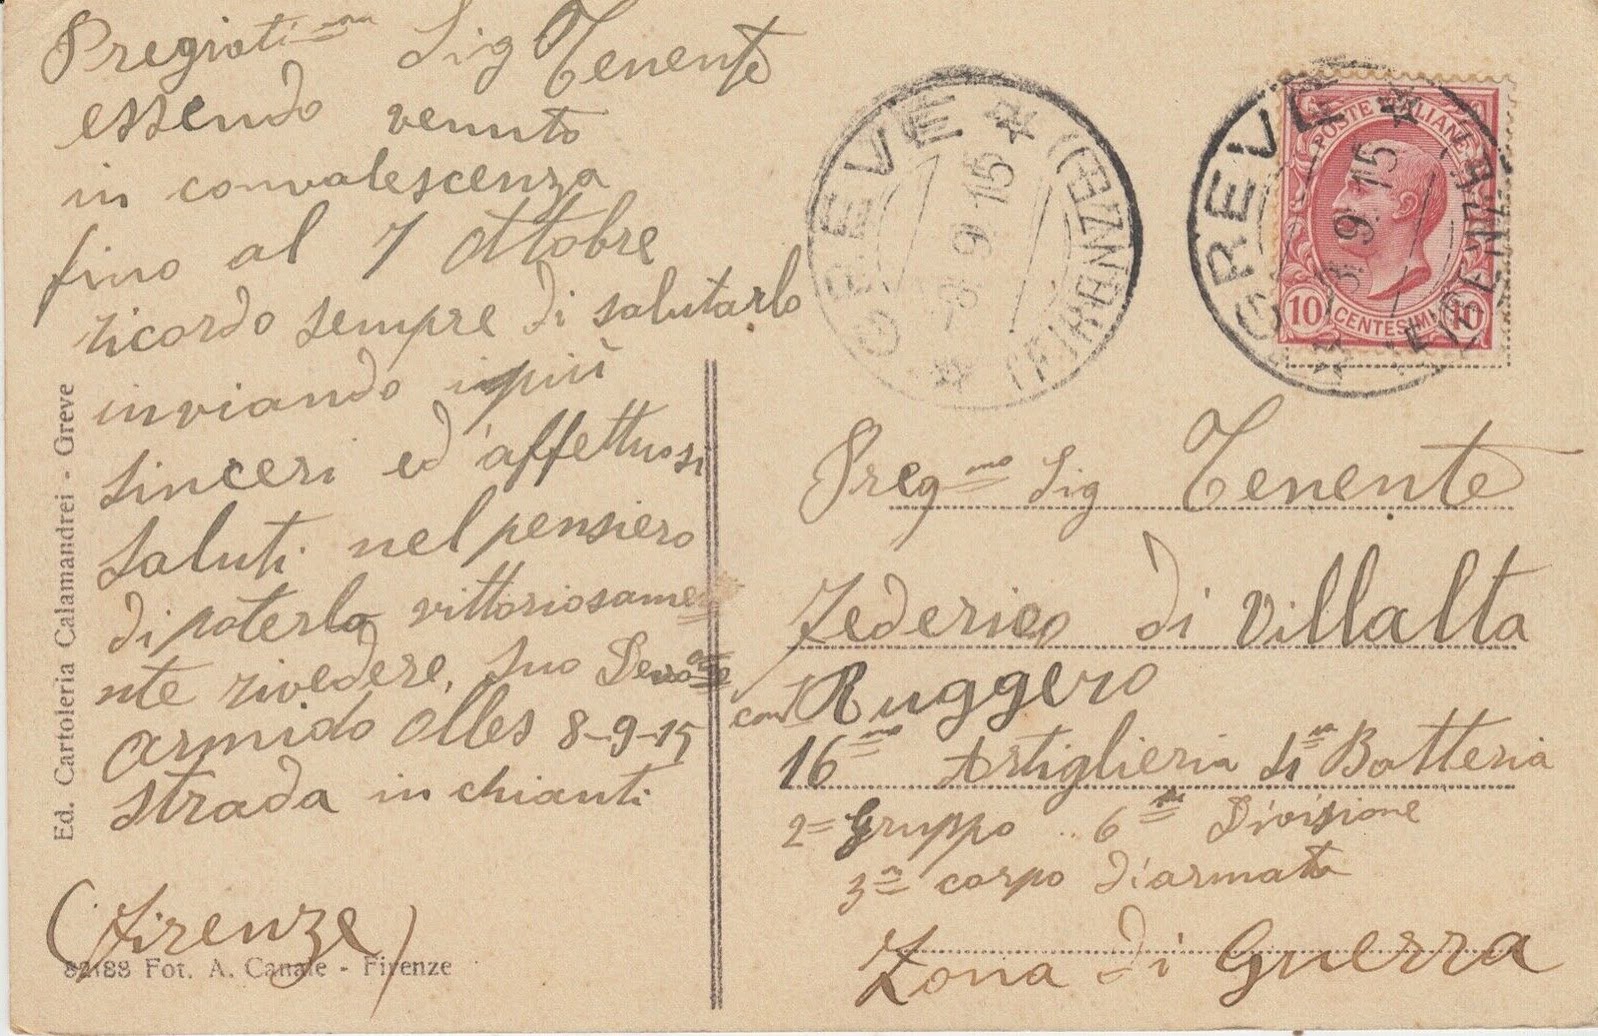 Pregiati=mo Sig Tenente
essendo venuto
in convalescenza
fino al 7 ottobre
ricordo sempre di salutarlo
inviando i più
sinceri ed affettuosi
saluti nel pensiero
di poterla vittoriosame
nte rivedere, suo
Armido Olles 8-9-15
Strada in chianti
(Firenze)
Ed. Cartoleria Calamandrei - Greve
82188 Fot. A. Canale - Firenze
GREVE * (FIRENZE) *
-8.9.15
GREVE * (FIRENZE)
8.9.15
POSTE ITALIANE
10 CENTESIMI 10
Preg=mo Sig Tenente
Federico di Villalta
Ruggero
16=mo Artiglieria Batteria
2= Gruppo 6= Divisione
3=a corpo d'armata
Zona di Guerra